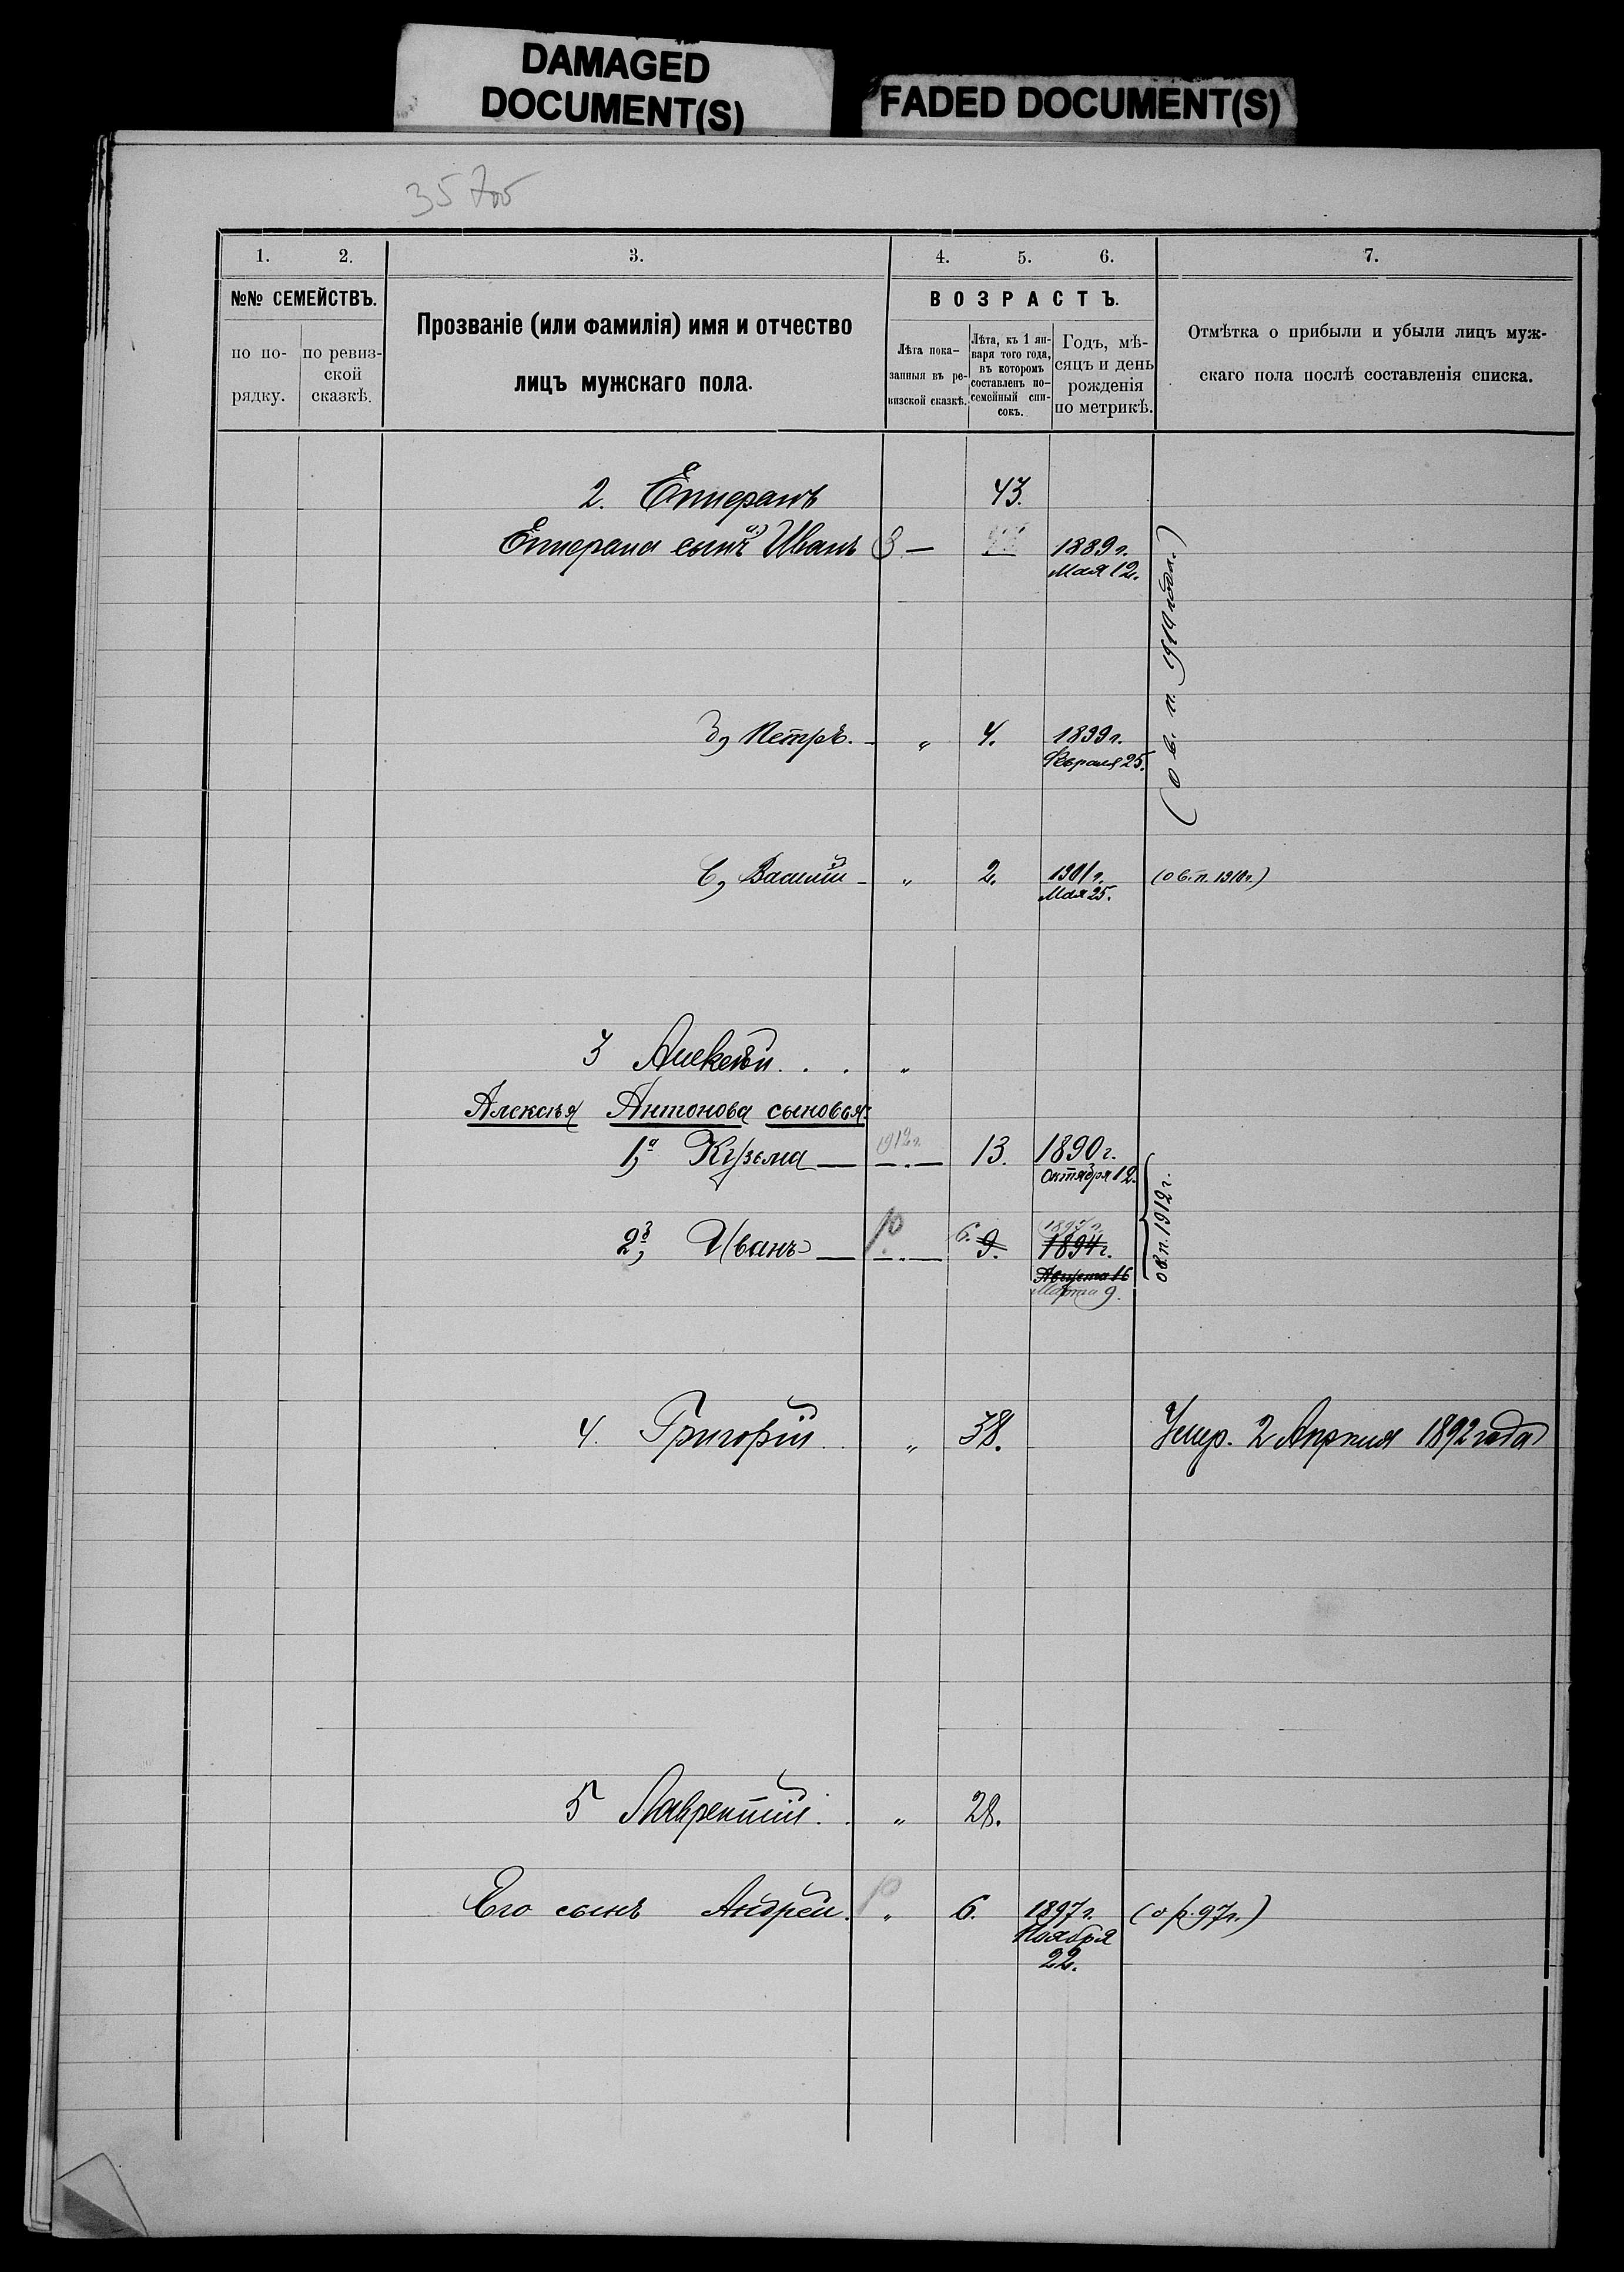 DAMAGED
DOCUMENT(S)
FADED DOCUMENT(S)
35 об
1. 2. 3. 4. 5. 6. 7.
№№ СЕМЕЙСТВЪ.
по по-
рядку.
по ревиз-
ской
сказкѣ.
Прозваніе (или фамилія) имя и отчество
лицъ мужскаго пола.
ВОЗРАСТЪ.
Лѣта пока-
занныя въ ре-
визской сказкѣ.
Лѣта, къ 1 ян-
варя того года,
въ которомъ
составленъ по-
семейный спи-
сокъ.
Годъ, мѣ-
сяцъ и день
рожденія
по метрикѣ.
Отмѣтка о прибыли и убыли лицъ муж-
скаго пола послѣ составленія списка.
2. 43.
сынъ Иванъ — 1889 г.
Мая 12.
Петръ. — " 4. 1899 г.
Февраля 25.
(о в. п. 1919 года.)
Василій — " 2. 1901 г. (о в. п. 1910 г.)
Мая 25.
3 Алексѣй . . . "
Алексѣя Антонова сыновья:
1, Кузьма — 1912 г. 13. 1890 г.
Октября 12.
2, Иванъ — 10 6. 9. 1897 г.
1894 г.
Августа 16
Марта 9.
о в. п. 1912 г.
4. Григорій . . " 38. Умер. 2 Апрѣля 1892 года
5 Лаврентій . . " 28.
Его сынъ Андрей. 10 " 6. 1897 г. (о р. 97 г.)
Ноября
22.